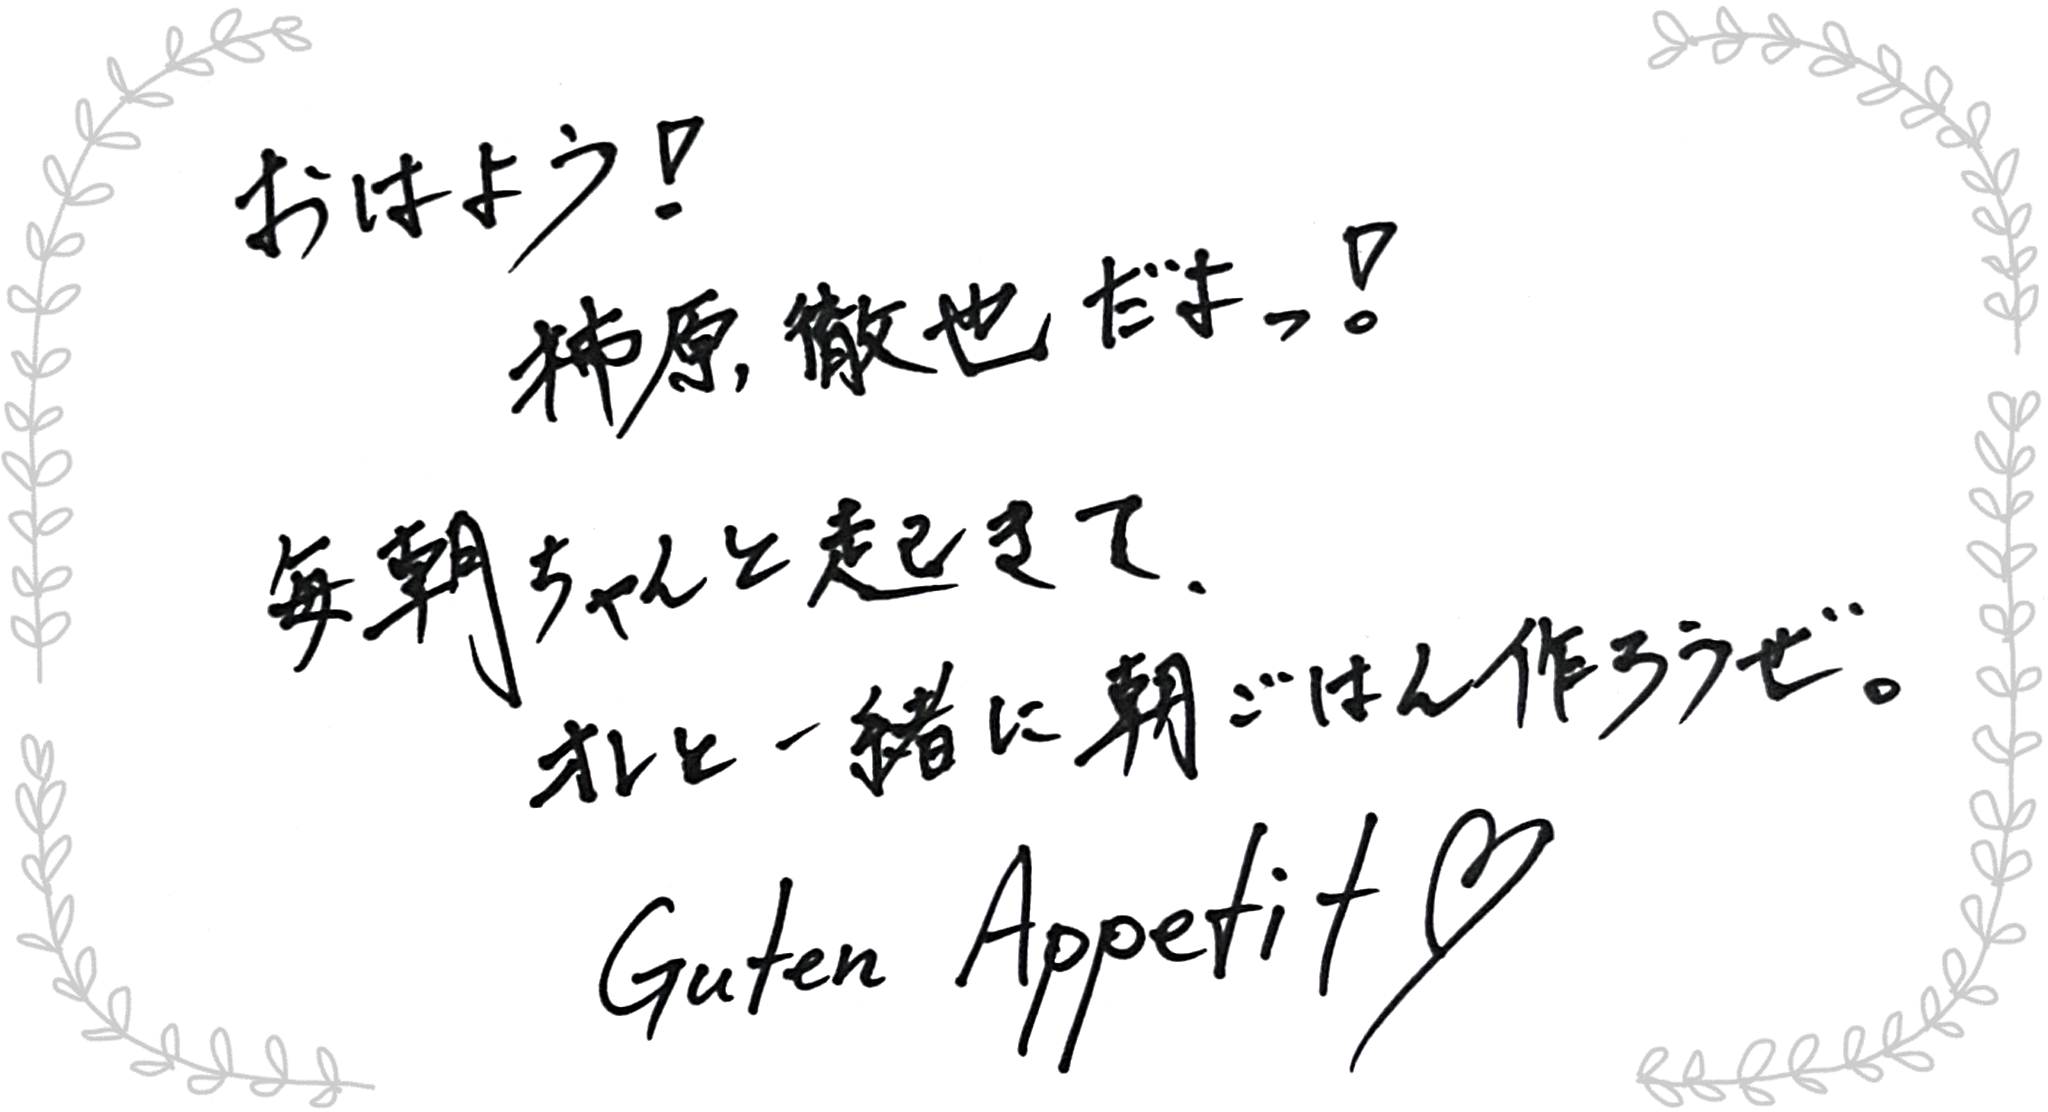 おはよう!
柿原徹也だよっ!
毎朝ちゃんと起きて、
オレと一緒に朝ごはん作ろうぜ。
Guten Appetit♡